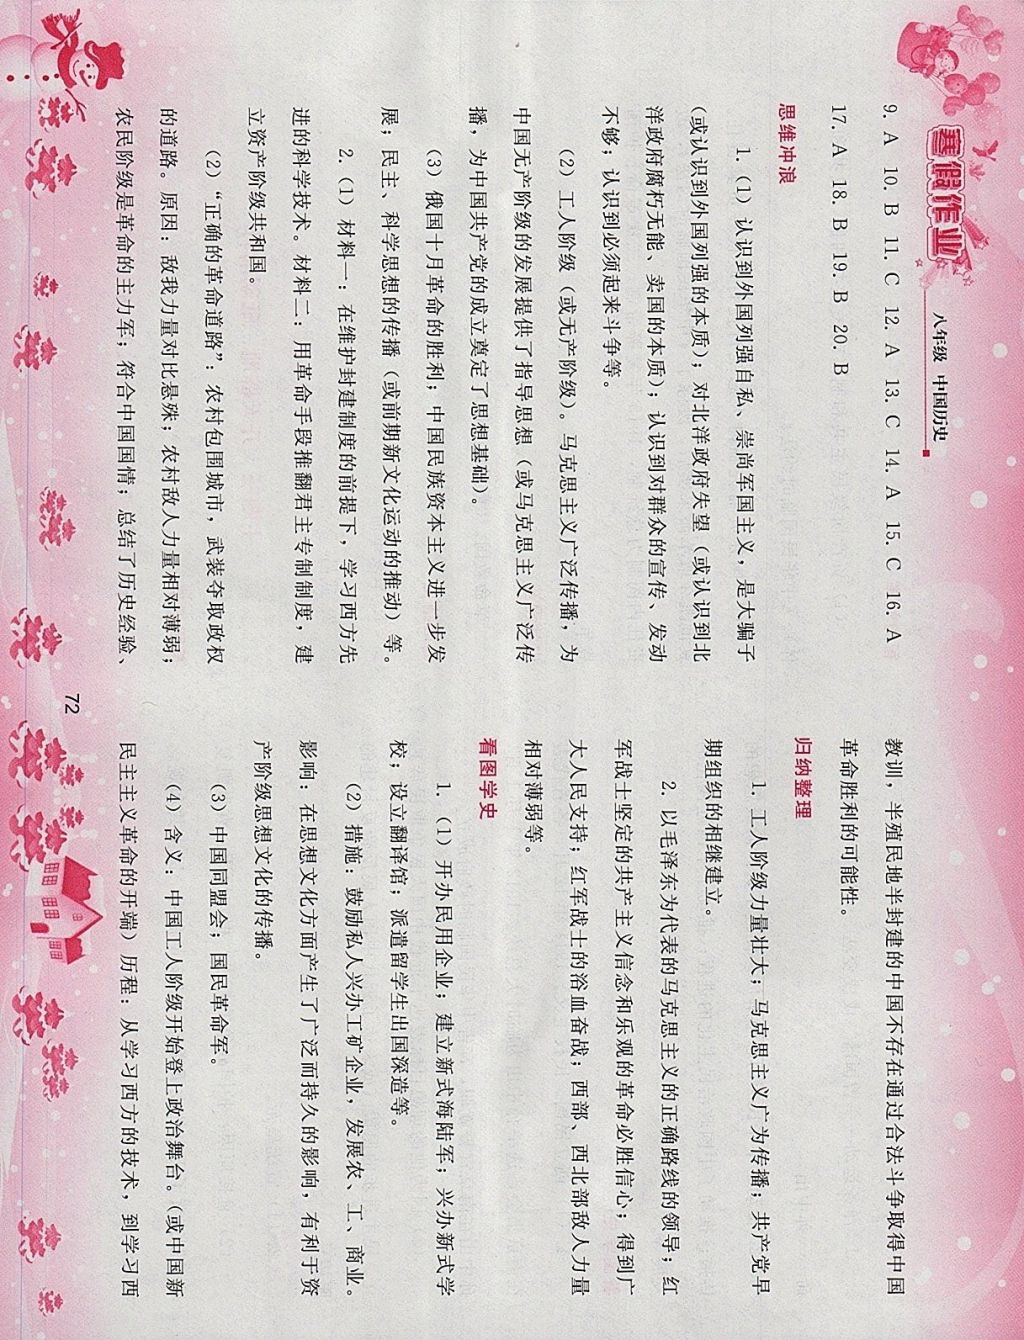 寒假作业
八年级 中国历史
9. A 10. B 11. C 12. A 13. C 14. A 15. C 16. A
17. A 18. B 19. B 20. B
思维冲浪
1. (1) 认识到外国列强自私、崇尚军国主义，是大骗子
(或认识到外国列强的本质)；对北洋政府失望(或认识到北
洋政府腐朽无能、卖国的本质)；认识到对群众的宣传、发动
不够；认识到必须起来斗争等。
(2) 工人阶级(或无产阶级)。马克思主义广泛传播，为
中国无产阶级的发展提供了指导思想(或马克思主义广泛传
播，为中国共产党的成立奠定了思想基础)。
(3) 俄国十月革命的胜利；中国民族资本主义进一步发
展；民主、科学思想的传播(或前期新文化运动的推动)等。
2. (1) 材料一：在维护封建制度的前提下，学习西方先
进的科学技术。材料二：用革命手段推翻君主专制制度，建
立资产阶级共和国。
(2) “正确的革命道路”：农村包围城市，武装夺取政权
的道路。原因：敌我力量对比悬殊；农村敌人力量相对薄弱；
农民阶级是革命的主力军；符合中国国情；总结了历史经验、
教训，半殖民地半封建的中国不存在通过合法斗争取得中国
革命胜利的可能性。
归纳整理
1. 工人阶级力量壮大；马克思主义广为传播；共产党早
期组织的相继建立。
2. 以毛泽东为代表的马克思主义的正确路线的领导；红
军战士坚定的共产主义信念和乐观的革命必胜信心；得到广
大人民支持；红军战士的浴血奋战；西部、西北部敌人力量
相对薄弱等。
看图学史
1. (1) 开办民用企业；建立新式海陆军；兴办新式学
校；设立翻译馆；派遣留学生出国深造等。
(2) 措施：鼓励私人兴办工矿企业，发展农、工、商业。
影响：在思想文化方面产生了广泛而持久的影响，有利于资
产阶级思想文化的传播。
(3) 中国同盟会；国民革命军。
(4) 含义：中国工人阶级开始登上政治舞台。(或中国新
民主主义革命的开端) 历程：从学习西方的技术，到学习西
72